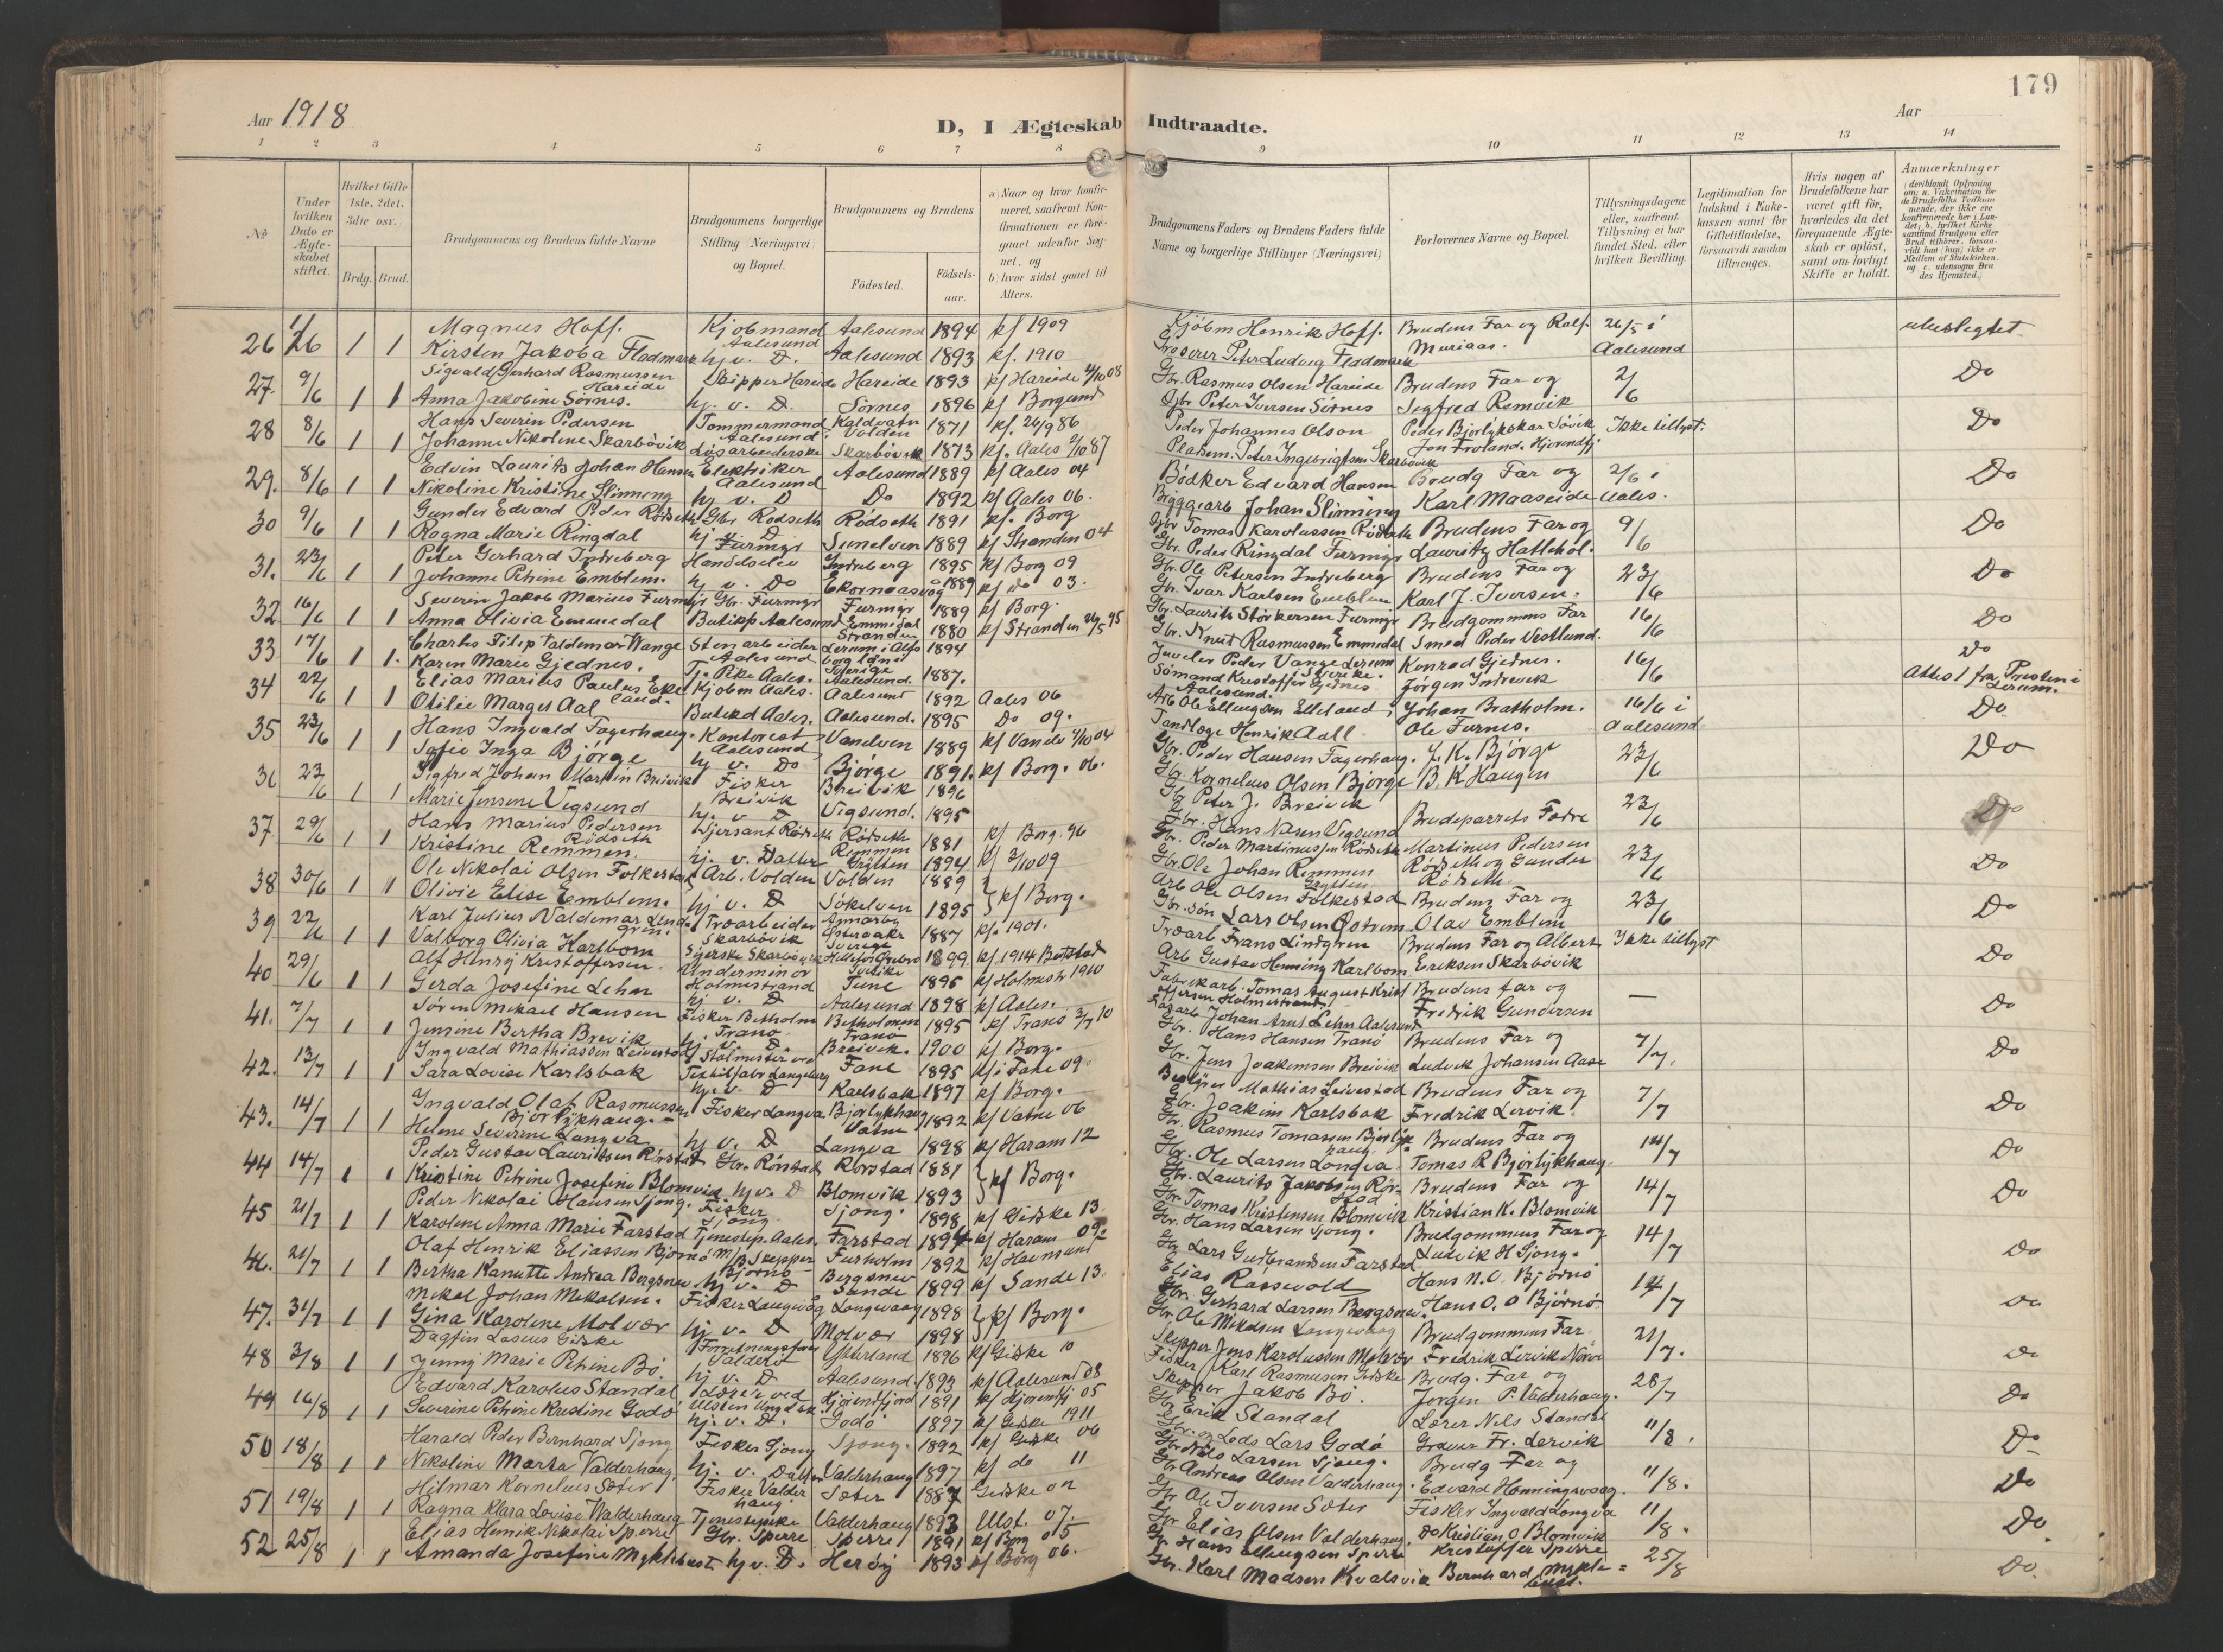 179
Aar 1918
Aar
D, I Ægteskab Indtraadte.
1 2 3 4 5 6 7 8 9 10 11 12 13 14
No
Under hvilken Dato er Ægteskabet stiftet.
Hvilket Gifte 1ste, 2det, 3die osv.
Brdg. Brud.
Brudgommens og Brudens fulde Navne
Brudgommens borgerlige Stilling (Næringsvei) og Bopæl.
Brudgommens og Brudens
Födested.
Födselsaar.
a) Naar og hvor konfirmeret, saafremt Konfirmationen er foregaaet udenfor Sognet, og
b) hvor sidst gaaet til Alters.
Brudgommens Faders og Brudens Faders fulde Navne og borgerlige Stillinger (Næringsvei)
Forlovernes Navne og Bopæl.
Tillysningsdagene eller, saafremt Tillysning ei har fundet Sted, efter hvilken Bevilling.
Legitimation for Indskud i Enkekassen samt for Giftetilladelse, forsaavidt saadan tiltrænges.
Hvis nogen af Brudefolkene har været gift för, hvorledes da det foregaaende Ægteskab er oplöst, samt om lovligt Skifte er holdt.
Anmærkninger
26 1 1 Magnus Hoff. Kjøbmand Aalesund Aalesund 1894 kf 1909 Kjøbm Henrik Hoff. Brudens Far og Ralf 26/5 i ubeslegtet
Kirsten Jakoba Fladmark hj. v. D. Aalesund 1893 kf. 1910 Groserer Peter Ludvig Fladmark Muriaas. Aalesund
27. 9/6 1 1 Sigvald Gerhard Rasmussen Hareide Skipper Hareide Hareide 1893 kf Hareide 4/10 08 Gbr. Rasmus Olsen Hareide Brudens Far og 2/6 Do
Anna Jakobine Sørnes. hj. v. D. Sørnes 1896 kf Borgund Gbr Peter Iversen Sørnes Segfred Remvik
28 8/6 1 1 Hans Severin Pedersen Tømmermand Aalesund Kaldvatn Volden 1871 kf. 26/9 86 Peder Johannes Olson Peder Bjorlykskar Søvik Ikke tillyst. Do
Johanne Nikoline Skarbøvik Løsarbeiderske Skarbøvik 1873 kf. Aales 2/10 87 Pladsm. Peter Ingebrigtsen Skarbøvik Jon Frøland. Hjørendfj
29. 8/6 1 1 Edvin Laurits Johan Hansen Elektriker Aalesund Aalesund 1889 kf Aales 04 Bødker Edvard Hansen Brudg Far og 2/6 i Do
Nikoline Kristine Slinning hj v. D Do 1892 kf Aales 06. Bryggearb Johan Slinning Karl Maaseide Aales.
30 9/6 1 1 Gunder Edvard Peder Rødseth Gbr Rødseth Rødseth 1891 kf. Borg Gbr Tomas Karolussen Rødseth Brudens Far og 9/6 Do
Ragna Marie Ringdal hj v. D Furmyr Sunelven 1889 kf Stranden 04 Gbr. Peder Ringdal Furmyr Lauritz Hatlehol.
31. 23/6 1 1 Peter Gerhard Indreberg Handelselev Indreberg 1895 kf Borg 09 Gbr. Ole Petersen Indreberg Brudens Far og 23/6 Do
Johanne Petrine Emblem. hj v. Do Ekornaasvåg 1889 kf do 03. Gbr. Ivar Karlsen Emblem Karl J. Iversen.
32 16/6 1 1 Severin Jakob Marius Furmyr Gbr. Furmyr Furmyr 1889 kf Borg. Gbr. Laurits Størkersen Furmyr Brudgommens Far 16/6 Do
Anna Olivia Emmedal Butikp Aalesund Emmedal Stranden 1880 kf Stranden 26/5 95 Gbr. Knut Rasmussen Emmedal Smed Peder Vestlund.
33 17/6 1 1. Charles Filip Valdemar Wange Stenarbeider Aalesund Lerum i Alfs borg läns Sverige 1894 Juveler Peder Vange Lerum Sverike. Konrad Gjednes. 16/6 Do
Karen Marie Gjednes. Tj. Pike Aales. Aalesund. 1887. Sømand Kristoffer Gjednes Aalesund. Jørgen Indrevik Attest fra Presten i Lerum.
34 22/6 1 1 Elias Marius Paulus Elleland. Kjøbm Aales. Aalesund 1892 Aales 06 Arb Ole Ellingsen Elleland Johan Bratholm. 16/6 i Do
Otilie Marget Aal Butikd Aales. Aalesund. 1895 Do 09. Tandlæge Henrik Aall Ole Furnes. Aalesund
35 23/6 1 1 Hans Ingvald Fagerhaug. Kontorest Aalesund Vanelven 1889 kf Vanelv 4/10 04 Gbr. Peder Hansen Fagerhaug. J. K. Bjørge 23/6 Do
Sofie Inga Bjørge hj v. Do Bjørge 1891. kf Borg. 06. Gbr. Kornelius Olsen Bjørge B. K Haugen
36 23/6 1 1 Sigfred Johan Martin Breivik Fisker Breivik Breivik 1896 Gbr Peter J. Breivik Brudeparrets Fædre 23/6 Do
Marie Jensene Vegsund hj. v D Vegsund. 1895 Gbr. Hans Nilsen Vegsund
37. 29/6 1 1 Hans Marius Pedersen Rødseth Sjersant Rødseth Rødseth 1881 kf Borg. 96 Gbr. Peder Martinussen Rødseth Martinus Pedersen 23/6 Do
Kristine Remmen. hj. v. Datter Remmen Grytten 1894. kf 3/10 09 Gbr. Ole Johan Remmen Grytten Rødseth og Gunder Rødseth
38 30/6 1 1 Ole Nikolai Olsen Folkestad Arb. Volden Volden 1889 Arb Ole Olsen Folkestad Brudens Far og 23/6 Do
Olivie Elise Emblem. hj v. D Søkelven 1895 } kf Borg. Gbr. søn Lars Olsen Østrem Olav Emblem
39 22/6 1 1 Karl Julius Valdemar Lindgren. Træarbeider Skarbøvik Sverige 1887 kf. 1901. Træarb Frans Lindgren Brudens Far og Albert Ikke tillyst Do
Valborg Olivia Karlbom Syerske Skarbøvik 1899. kf. 1914 Arb Gustav Henning Karlbom Eriksen Skarbøvik
40 29/6 1 1 Alf Henry Kristoffersen. Underminør Holmestrand Tune 1895 kf Holmestr 1910 Fabrikarb. Tomas August Kristoffersen Holmestrand Brudens far og — Do
Gerda Josefine Lehn hj v. D Aalesund 1898 kf Aales. Johan Arnt Lehn Aalesund Fredrik Gundersen
41. 7/7 1 1 Søren Mekael Hansen Fisker Betholm Tranø Betholmen Tranø 1895 kf Tranø 3/7 10 Gbr. Hans Hansen Tranø Brudens Far og 7/7. Do
Jensine Bertha Brevik hj. v. D. Breivik. 1900 kf Borg. Gbr. Jens Joakimsen Breivik Ludvik Johansen Aase
42. 13/7 1 1 Ingvald Mathiassen Leivestad Stolmester ved Textilfabr Langevåg Fane 1895 kf i Fane 09. Bestyrer Mathias Leivestad Brudens Far og 7/7 Do
Sara Lovise Karlsbak hj. v. D Karlsbak 1897 kf Borg. Gbr. Joakim Karlsbak Fredrik Lervik.
43. 14/7 1 1 Ingvald Olaf Rasmussen Bjørlykhaug. Fisker Langva Bjørlykhaug Vatne 1892 kf Vatne 06 Gbr. Rasmus Tomassen Bjørlykhaug Brudens Far og 14/7 Do
Helene Severine Langva hj v. D Langva 1898 kf Haram 12 Gbr. Ole Larsen Longva Tomas R Bjørlykhaug
44 14/7 1 1 Peder Gustav Lauritsen Rørstad Gbr. Rørstad Rørstad 1881 Gbr. Laurits Jakobsen Rørstad Brudens Far og 14/7 Do
Kristine Petrine Josefine Blomvik hj v. D Blomvik 1893 } kf Borg. Gbr. Tomas Kristensen Blomvik Kristian K. Blomvik
45 21/7 1 1 Peder Nikolai Hansen Sjong. Fisker Sjong Sjong. 1898 kf Giske 13. Gbr. Hans Larsen Sjong. Brudgommens Far og 14/7 Do
Karoline Anna Marie Farstad Tjenestep. Aales. Farstad 1894 kf Haram 09. Gbr Lars Gudbrandsen Farstad Ludvik H Sjong.
46. 21/7 1 1 Olaf Henrik Eliassen Bjørnø M/B Skipper Bjørnø Furholm 1892 kf Havnsund Elias Rossevold Hans N. O. Bjørnø 14/7
Bertha Kanutte Andrea Bergsnev hj v. D Bergsnev Sande 1899 kf Sande 13. Gbr. Gerhard Larsen Bergsnev. Hans O. O Bjørnø
47. 31/7 1 1 Mekal Johan Mekalsen. Fisker Langevåg Langevaag 1898 Gbr. Ole Mekalsen Langevaag Brudgommens Far. 21/7. Do
Gina Karoline Molvær hj v. D Molvær 1898 } kf Borg. Skipper Jens Karolussen Molvær Fredrik Lervik Nørve
48 3/8 1 1 Dagfin Lasius Giske Valderø Ytterland 1896 kf Giske 10 Fisker Karl Rasmusen Giske Brudg. Far og 28/7 Do
Jenny Marie Petrine Bø. hj v. D Aalesund 1893 kf Aalesund 08 Skipper Jakob Bø. Jørgen P. Valderhaug.
49 16/8 1 1 Edvard Karolus Standal Lærer ved Hjørendfjord 1891 kf Hjørendfj 05 Gbr Erik Standal Lærer Nils Standal 11/8. Do
Severine Petrine Kristine Godø hj. v. D. Godø 1897 kf Giske 1911 Gbr. og Lods Lars Godø Graver Fr. Lervik
50 18/8 1 1 Harald Peder Bernhard Sjong Fisker Sjong Sjong. 1892 kf Giske 06 Gbr Nils Larsen Sjong. Brudg Far og 11/8. Do
Nikoline Marta Valderhaug. hj. v. Datter Valderhaug 1897 kf do 11 Gbr Andreas Olsen Valderhaug. Edvard Henningsvaag.
51 19/8 1 1 Hilmar Kornelius Sæter Fisker Valderhaug. Sæter 1887 Giske 02 Gbr Ole Iversen Sæter Fisker Ingvald Longva 11/8. Do
Ragna Klara Lovise Walderhaug Tjenestepike Valderhaug 1893 Ulst. 07. Gbr Elias Olsen Valderhaug. Do Kristian O Blomvik
52 25/8 1 1 Elias Henrik Nikolai Sperre Gbr. Sperre Sperre 1891 kf Borg 05 Gbr Hans Ellingsen Sperre Kristoffer Sperre 25/8 Do.
Amanda Josefine Myklebust hj v. D. Herøy 1893 kf Borg 06. Gbr. Karl Madsen Kvalsvik Bernhard Myklebust.